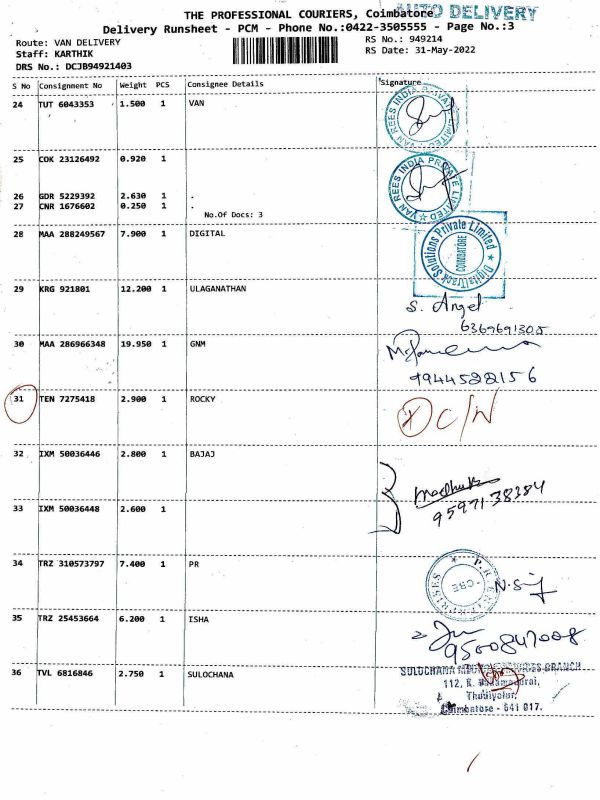 THE PROFESSIONAL COURIERS, Coimbatore
AUTO DELIVERY
Delivery Runsheet - PCM - Phone No.:0422-3505555 - Page No.:3
Route: VAN DELIVERY
RS No.: 949214
Staff: KARTHIK
RS Date: 31-May-2022
DRS No.: DCJB94921403
S No Consignment No Weight PCS Consignee Details Signature
24 TUT 6043353 1.500 1 VAN
VAN REES INDIA PRIVATE LIMITED
25 COK 23126492 0.920 1
VAN REES INDIA PRIVATE LIMITED
26 GDR 5229392 2.630 1 .
27 CNR 1676602 0.250 1 .
No.Of Docs: 3
28 MAA 288249567 7.900 1 DIGITAL
DigitalTrack Solutions Private Limited
COIMBATORE
29 KRG 921801 12.200 1 ULAGANATHAN
S. Angel
6369691305
30 MAA 286966348 19.950 1 GNM
9944522156
31 TEN 7275418 2.900 1 ROCKY
D C/N
32 IXM 50036446 2.800 1 BAJAJ
Madhu
9597138384
33 IXM 50036448 2.600 1
34 TRZ 310573797 7.400 1 PR
CBE
N.
35 TRZ 25453664 6.200 1 ISHA
9500847008
36 TVL 6816846 2.750 1 SULOCHANA
SULOCHANA BRANCH
112, K.
Thudiyalur,
Coimbatore - 641 017.